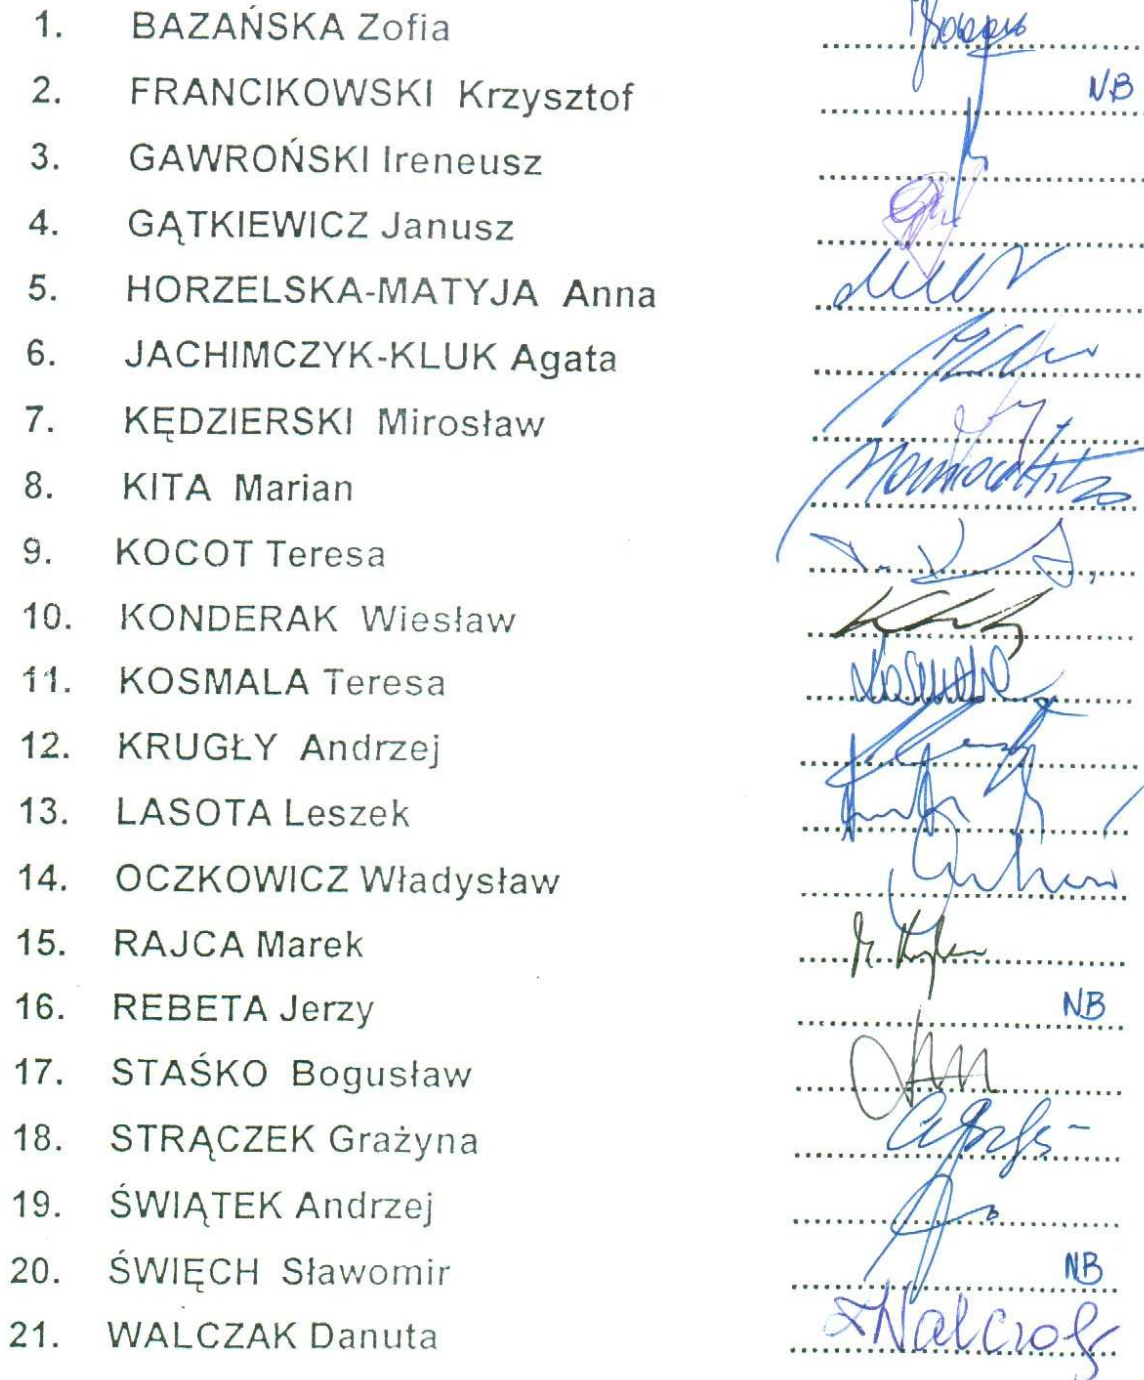 1. BAZAŃSKA Zofia
2. FRANCIKOWSKI Krzysztof NB
3. GAWROŃSKI Ireneusz
4. GĄTKIEWICZ Janusz
5. HORZELSKA-MATYJA Anna
6. JACHIMCZYK-KLUK Agata
7. KĘDZIERSKI Mirosław
8. KITA Marian
9. KOCOT Teresa
10. KONDERAK Wiesław
11. KOSMALA Teresa
12. KRUGŁY Andrzej
13. LASOTA Leszek
14. OCZKOWICZ Władysław
15. RAJCA Marek
16. REBETA Jerzy NB
17. STAŚKO Bogusław
18. STRĄCZEK Grażyna
19. ŚWIĄTEK Andrzej
20. ŚWIĘCH Sławomir NB
21. WALCZAK Danuta